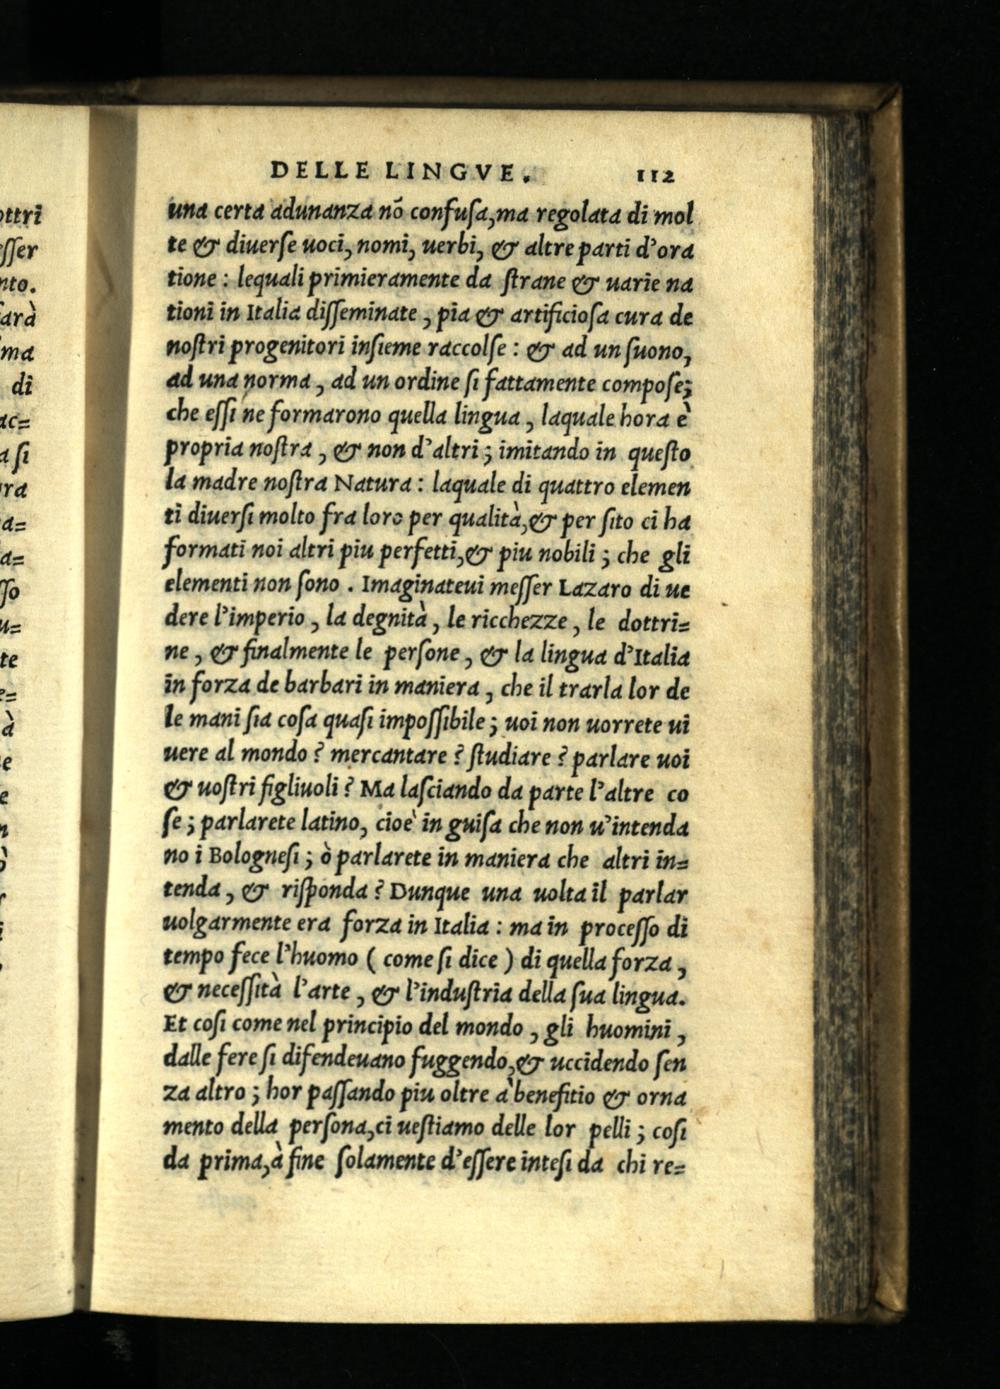 DELLE LINGVE. 112
una certa adunanza nõ confuſa,ma regolata di mol
te & diuerſe uoci, nomi, uerbi, & altre parti d'ora
tione : lequali primieramente da ſtrane & uarie na
tioni in Italia diſſeminate , pia & artificioſa cura de
noſtri progenitori inſieme raccolſe : & ad un ſuono,
ad una norma , ad un ordine ſi fattamente compoſe;
che eſſi ne formarono quella lingua , laquale hora è
propria noſtra , & non d'altri ; imitando in queſto
la madre noſtra Natura : laquale di quattro elemen
ti diuerſi molto fra loro per qualità,& per ſito ci ha
formati noi altri piu perfetti,& piu nobili ; che gli
elementi non ſono . Imaginateui meſſer Lazaro di ue
dere l'imperio , la degnità , le ricchezze , le dottri=
ne , & finalmente le perſone , & la lingua d'Italia
in forza de barbari in maniera , che il trarla lor de
le mani ſia coſa quaſi impoſſibile ; uoi non uorrete ui
uere al mondo ? mercantare ? ſtudiare ? parlare uoi
& uoſtri figliuoli ? Ma laſciando da parte l'altre co
ſe ; parlarete latino, cioè in guiſa che non u'intenda
no i Bologneſi ; ò parlarete in maniera che altri in=
tenda , & riſponda ? Dunque una uolta il parlar
uolgarmente era forza in Italia : ma in proceſſo di
tempo fece l'huomo ( come ſi dice ) di quella forza ,
& neceſſità l'arte , & l'induſtria della ſua lingua.
Et coſi come nel principio del mondo , gli huomini ,
dalle fere ſi difendeuano fuggendo,& uccidendo ſen
za altro ; hor paſſando piu oltre à benefitio & orna
mento della perſona,ci ueſtiamo delle lor pelli ; coſi
da prima,à fine ſolamente d'eſſere inteſi da chi re=
ottri
eſſer
nto.
arà
ma
di
ac=
a ſi
ra
a=
a=
ſſo
u=
te
e=
à
e
e
n